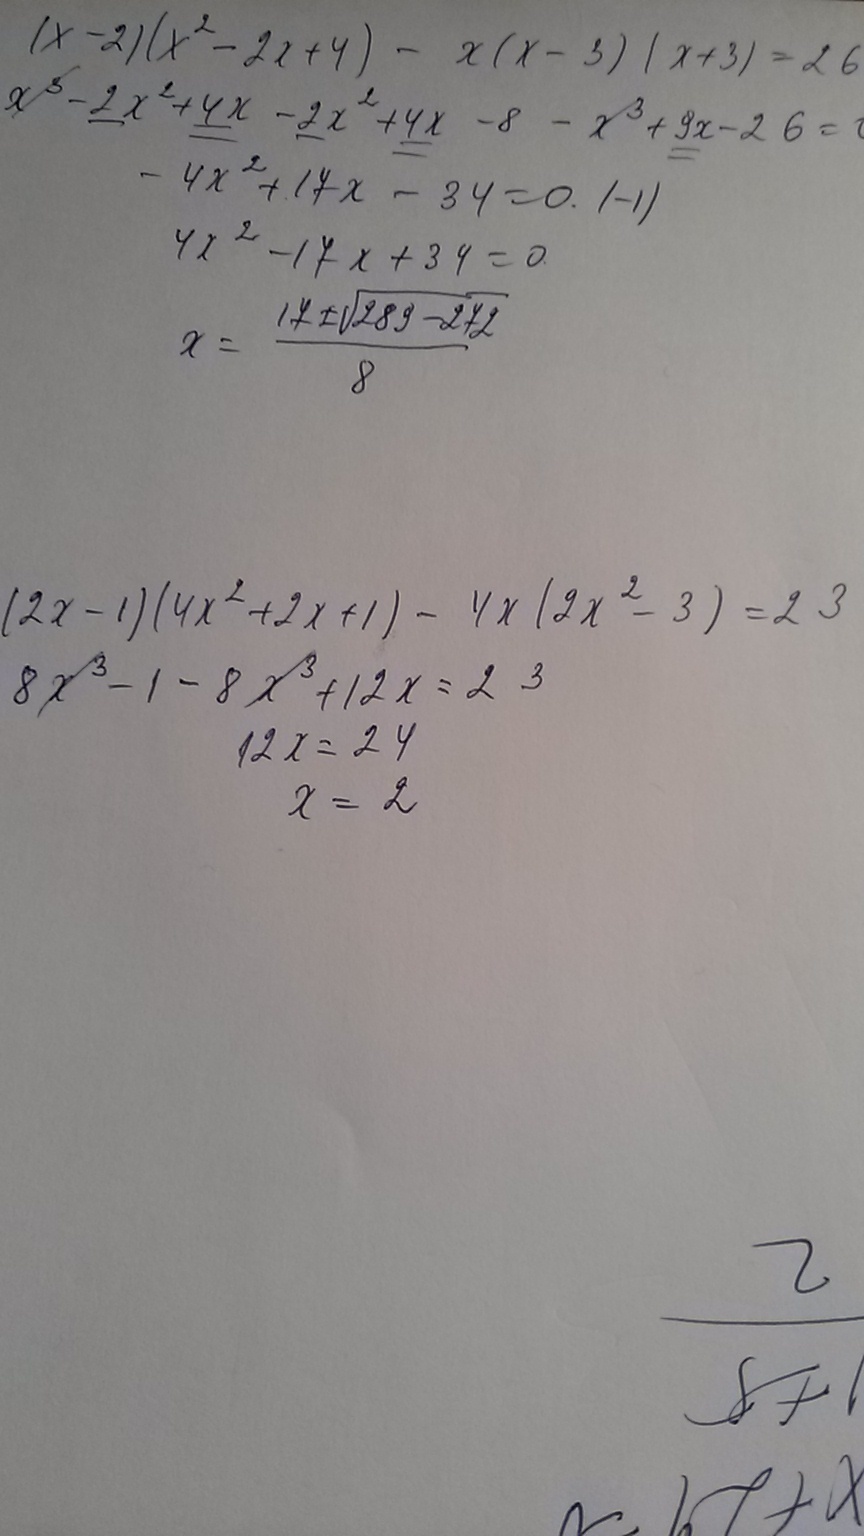 (x-2)(x²-2x+4) - x(x-3)(x+3)=26
x³-2x²+4x-2x²+4x-8-x³+9x-26=
-4x²+17x-34=0. (-1)
4x²-17x+34=0
x = (17±√(289-272))/8
(2x-1)(4x²+2x+1) - 4x(2x²-3)=23
8x³-1-8x³+12x=23
12x=24
x=2